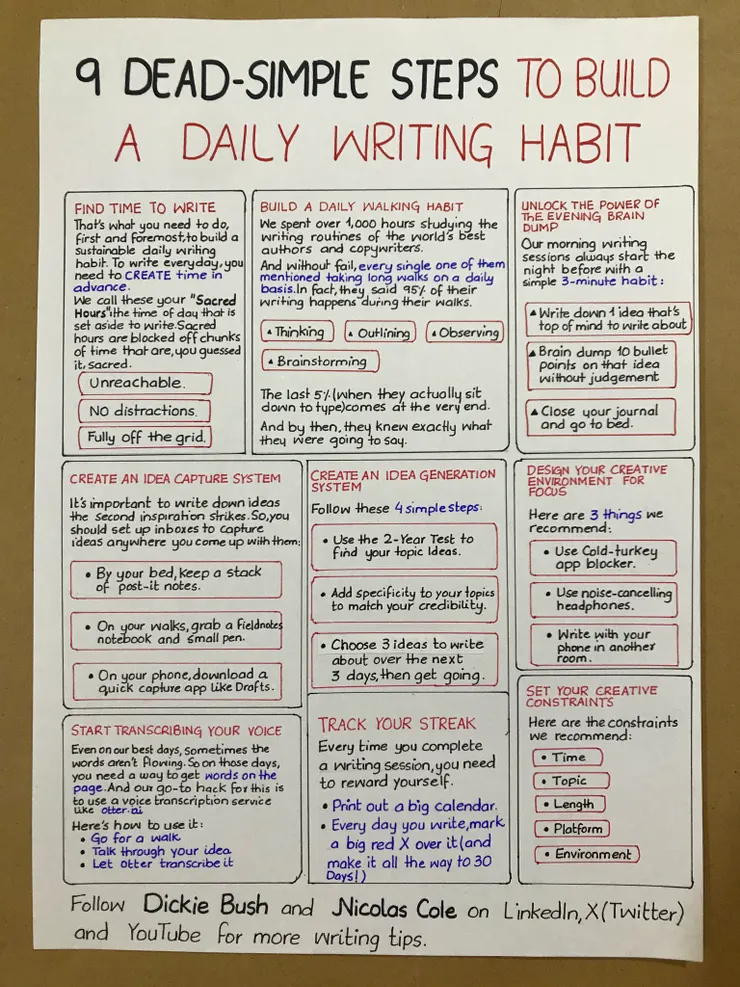 9 DEAD-SIMPLE STEPS TO BUILD
A DAILY WRITING HABIT
FIND TIME TO WRITE
That's what you need to do,
first and foremost,to build a
sustainable daily writing
habit. To write everyday,you
need to CREATE time in
advance.
We call these your "Sacred
Hours":the time of day that is
set aside to write.Sacred
hours are blocked off chunks
of time that are,you guessed
it,sacred.
Unreachable.
NO distractions.
Fully off the grid.
BUILD A DAILY WALKING HABIT
We spent over 1,000 hours studying the
writing routines of the world's best
authors and copywriters.
And without fail,every single one of them
mentioned taking long walks on a daily
basis.In fact,they said 95% of their
writing happens during their walks.
▲ Thinking
▲ Outlining
▲ Observing
▲ Brainstorming
The last 5%(when they actually sit
down to type)comes at the very end.
And by then,they knew exactly what
they were going to say.
UNLOCK THE POWER OF
THE EVENING BRAIN
DUMP
Our morning writing
sessions always start the
night before with a
simple 3-minute habit:
▲ Write down 1 idea that's
top of mind to write about
▲ Brain dump 10 bullet
points on that idea
without judgement
▲ Close your journal
and go to bed.
CREATE AN IDEA CAPTURE SYSTEM
It's important to write down ideas
the second inspiration strikes.So,you
should set up inboxes to capture
ideas anywhere you come up with them:
• By your bed,keep a stack
of post-it notes.
• On your walks,grab a Fieldnotes
notebook and small pen.
• On your phone,download a
quick capture app like Drafts.
CREATE AN IDEA GENERATION
SYSTEM
Follow these 4 simple steps:
• Use the 2-Year Test to
find your topic Ideas.
• Add specificity to your topics
to match your credibility.
• Choose 3 ideas to write
about over the next
3 days,then get going.
DESIGN YOUR CREATIVE
ENVIRONMENT FOR
FOCUS
Here are 3 things we
recommend:
• Use Cold-turkey
app blocker.
• Use noise-cancelling
headphones.
• Write with your
phone in another
room.
START TRANSCRIBING YOUR VOICE
Even on our best days, Sometimes the
words aren't flowing. So on those days,
you need a way to get words on the
page.And our go-to hack for this is
to use a voice transcription service
like otter.ai
Here's how to use it:
• Go for a walk
• Talk through your idea
• Let otter transcribe it
TRACK YOUR STREAK
Every time you complete
a writing session,you need
to reward yourself.
• Print out a big calendar.
• Every day you write,mark
a big red X over it(and
make it all the way to 30
Days!)
SET YOUR CREATIVE
CONSTRAINTS
Here are the constraints
we recommend:
• Time
• Topic
• Length
• Platform
• Environment
Follow Dickie Bush and Nicolas Cole on LinkedIn,X(Twitter)
and YouTube for more writing tips.